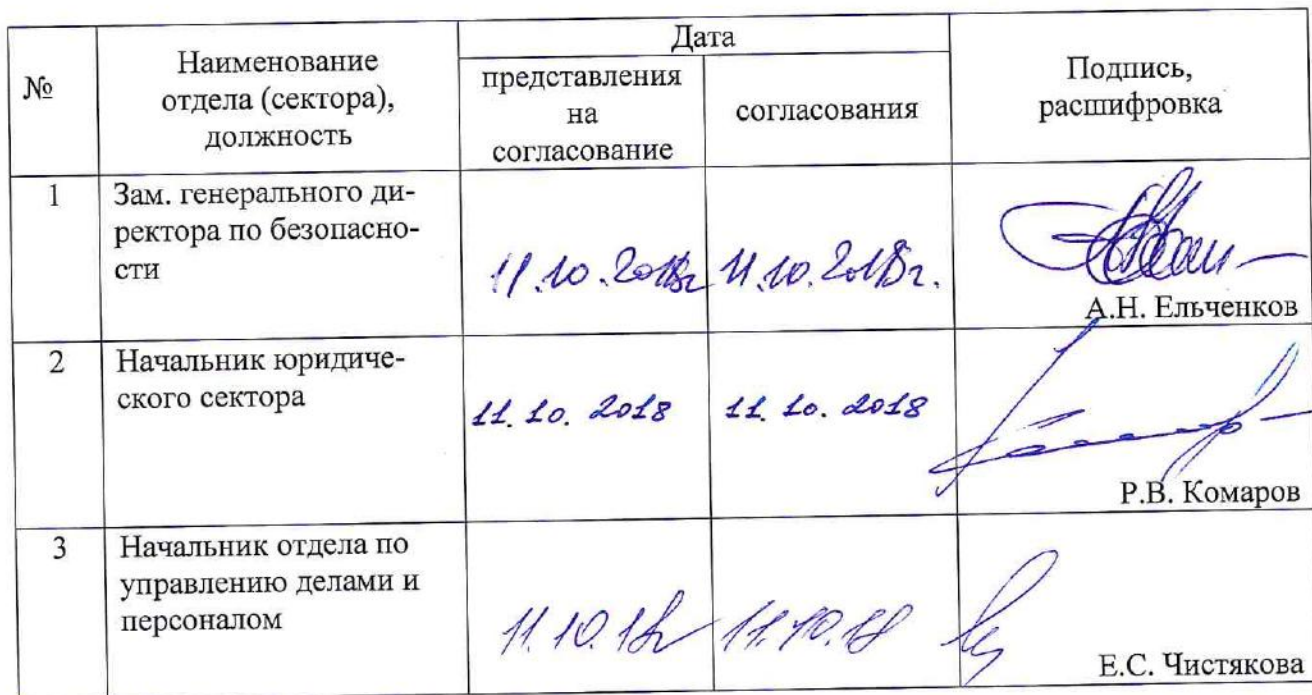 №
Наименование
отдела (сектора),
должность
Дата
представления
на
согласование
согласования
Подпись,
расшифровка
1
Зам. генерального ди-
ректора по безопасно-
сти
11.10.2018г
11.10.2018г.
А.Н. Ельченков
2
Начальник юридиче-
ского сектора
11.10.2018
11.10.2018
Р.В. Комаров
3
Начальник отдела по
управлению делами и
персоналом
11.10.18г
11.10.18
Е.С. Чистякова